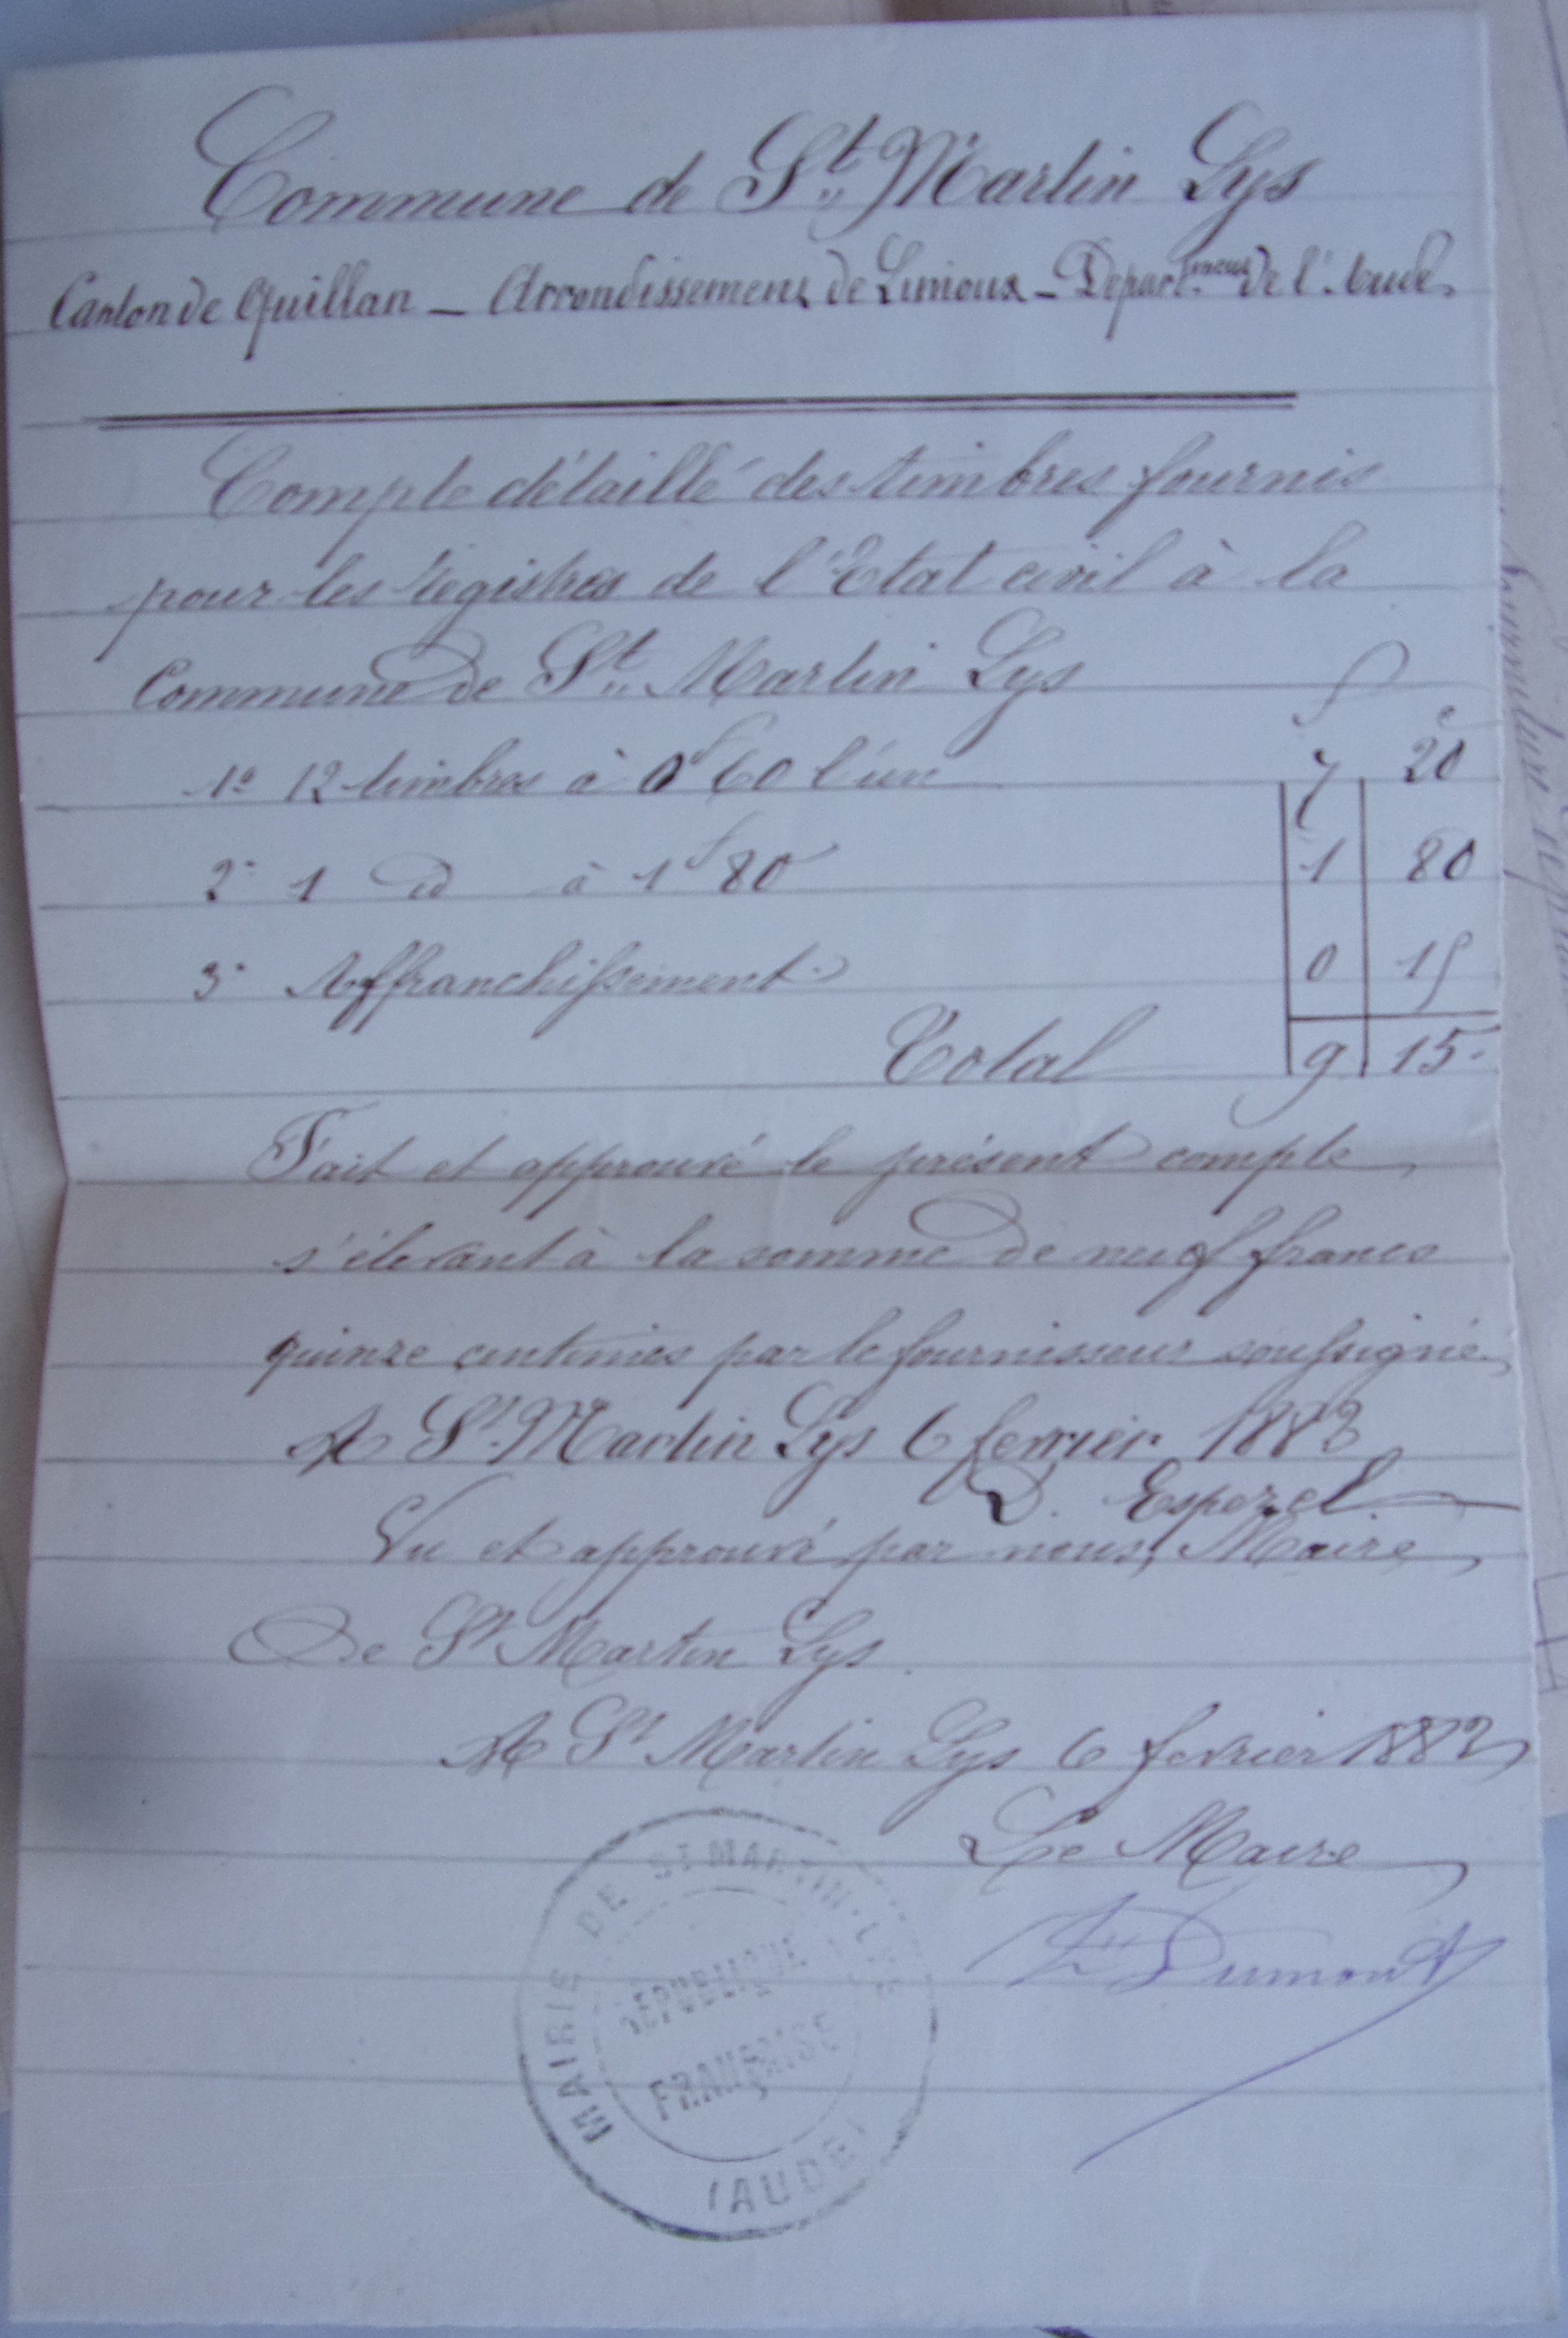 Commune de St. Martin Lys
Canton de Quillan _ Arrondissement de Limoux _ Départ.ment de l'Aude.
Compte détaillé des timbres fournis
pour les régistres de l'Etat civil à la
Commune de St. Martin Lys
f c
1º 12 timbres à 0f60 l'un 7 20
2º 1 id à 1f80 1 80
3º Affranchissement. 0 15
Total 9 15.
Fait et approuvé le présent compte,
s'élevant à la somme de neuf francs
quinze centimes par le fournisseur soussigné.
A St. Martin Lys 6 fevrier 1883
D. Espezel
Vu et approuvé par nous, Maire,
De St Martin Lys.
A St Martin Lys 6 fevrier 1883
Le Maire
Dumont
MAIRIE DE ST MARTIN-LYS
RÉPUBLIQUE
FRANÇAISE
(AUDE)